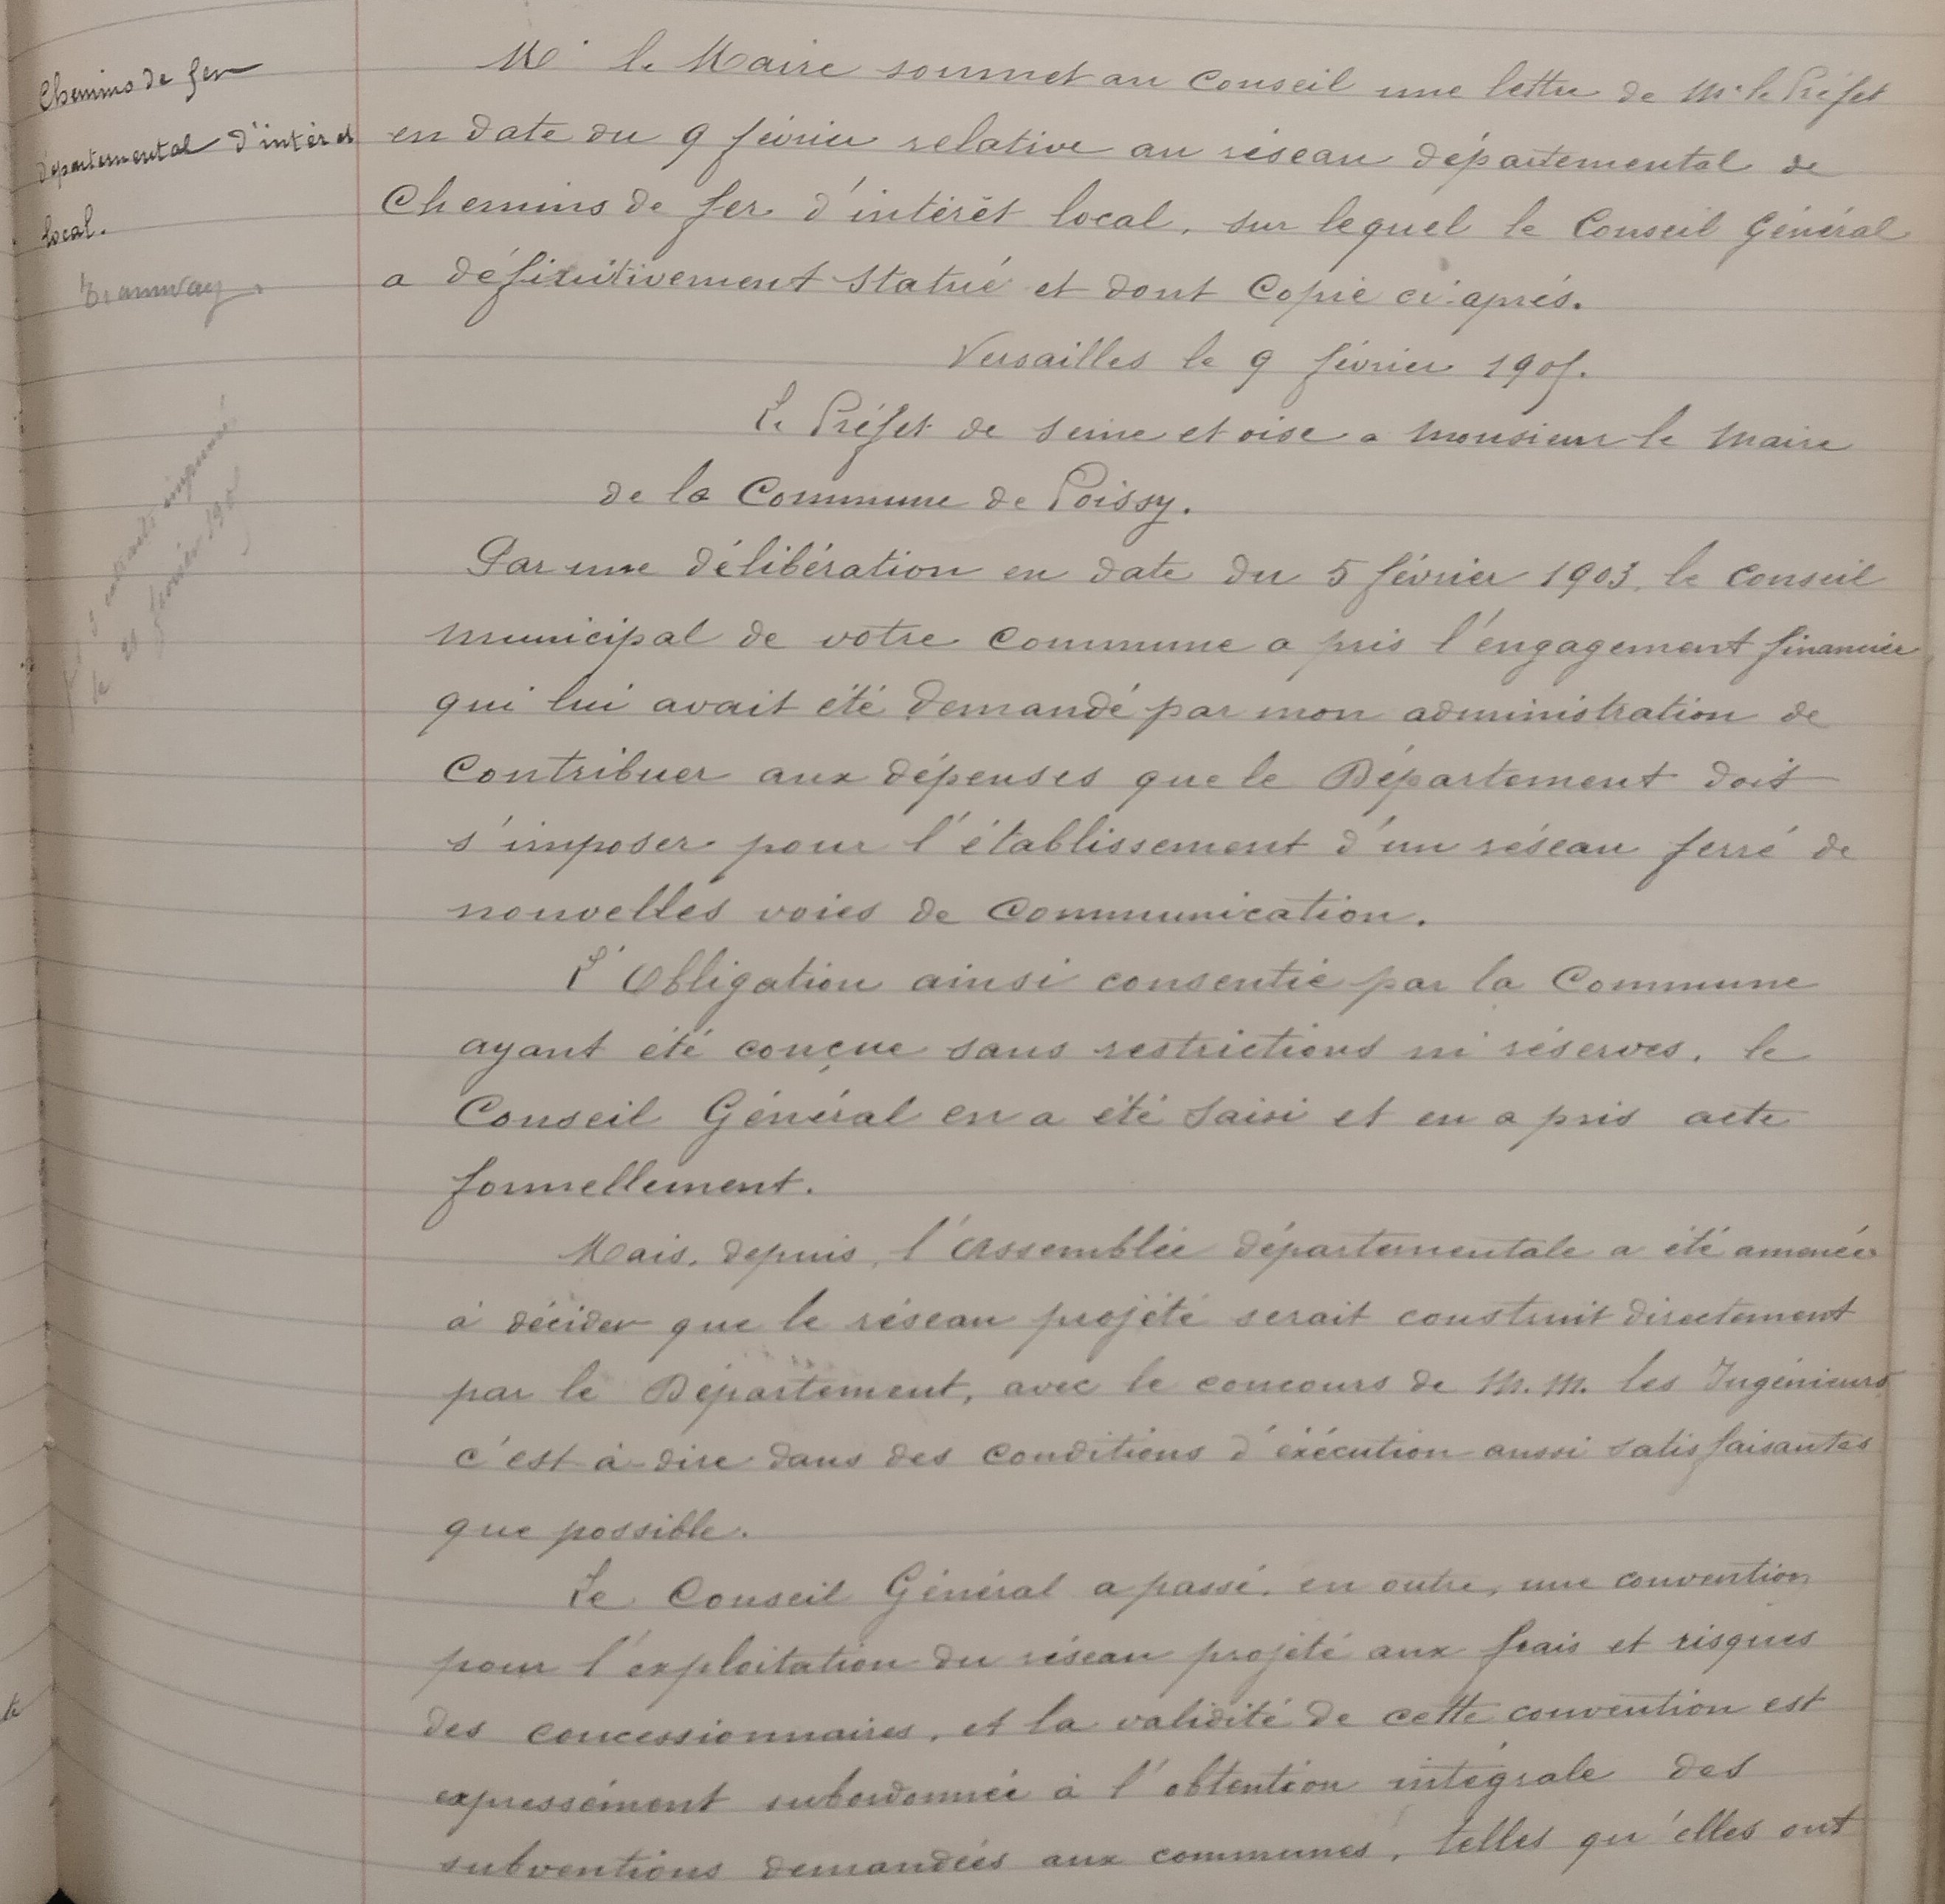 Chemins de fer
départemental d'intérêt
local.
Tramway.
le 21 février 190
Mr le Maire soumet au Conseil une lettre de Mr le Préfet
en date du 9 février relative au réseau départemental de
Chemins de fer d'intérêt local, sur lequel le Conseil Général
a définitivement statué et dont Copie ci-après.
Versailles le 9 février 1905.
Le Préfet de Seine et oise a Monsieur le Maire
de la Commune de Poissy.
Par une délibération en date du 5 février 1903, le Conseil
Municipal de votre Commune a pris l'engagement financier
qui lui avait été demandé par mon administration de
Contribuer aux dépenses que le Département doit
s'imposer pour l'établissement d'un réseau ferré de
nouvelles voies de Communication.
L'Obligation ainsi consentie par la Commune
ayant été conçue sans restrictions ni réserves, le
Conseil Général en a été saisi et en a pris acte
formellement.
Mais, depuis, l'Assemblée départementale a été amenée
à décider que le réseau projété serait construit directement
par le Département, avec le concours de M.M. les Ingénieurs
c'est-à-dire dans des conditions d'éxécution aussi satisfaisantes
que possible.
Le Conseil Général a passé, en outre, une convention
pour l'exploitation du réseau projété aux frais et risques
des concessionnaires, et la validité de cette convention est
expressément subordonnée à l'obtention intégrale des
subventions demandées aux communes, telles qu'elles ont